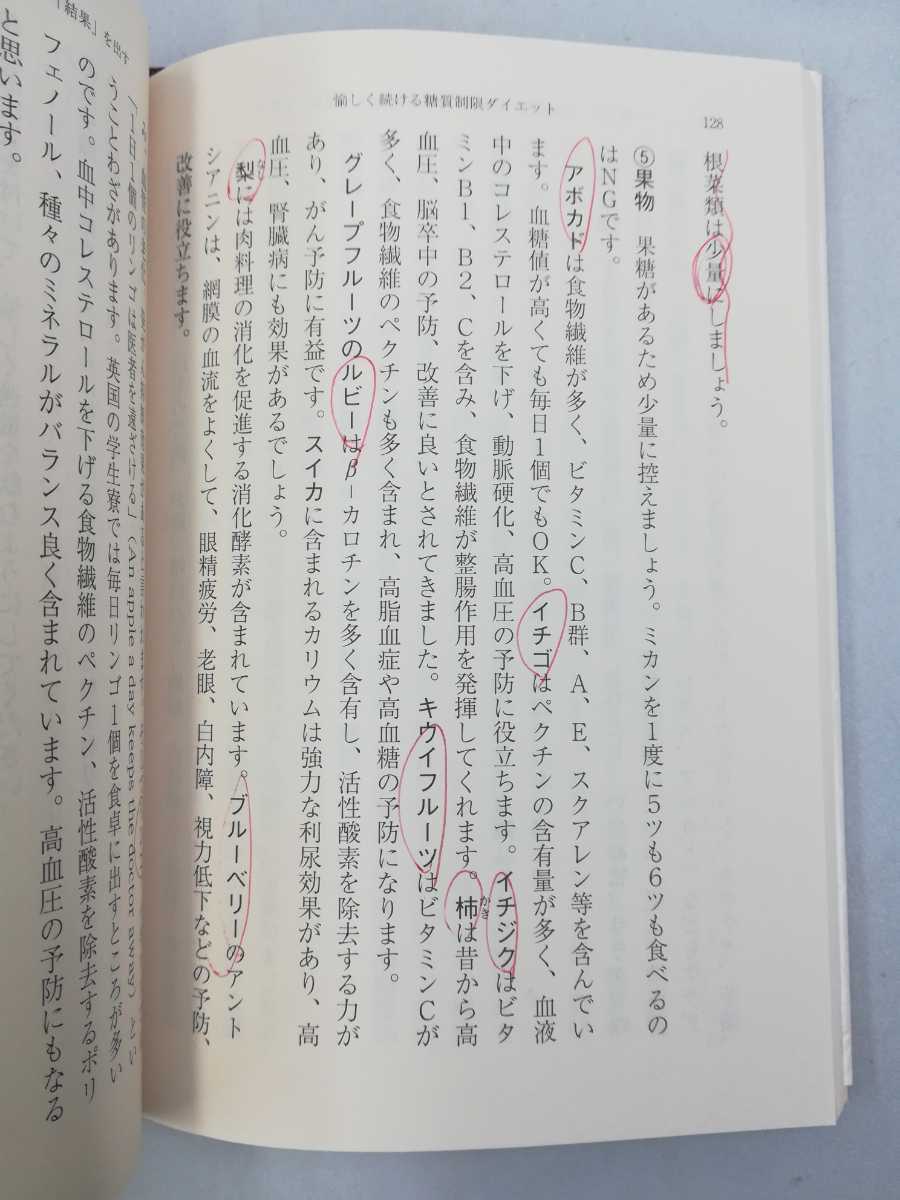 128
愉しく続ける糖質制限ダイエット
根菜類は少量にしましょう。
⑤果物 果糖があるため少量に控えましょう。ミカンを1度に5ツも6ツも食べるの
はNGです。
アボカドは食物繊維が多く、ビタミンC、B群、A、E、スクアレン等を含んでい
ます。血糖値が高くても毎日1個でもOK。イチゴはペクチンの含有量が多く、血液
中のコレステロールを下げ、動脈硬化、高血圧の予防に役立ちます。イチジクはビタ
ミンB1、B2、Cを含み、食物繊維が整腸作用を発揮してくれます。柿は昔から高
血圧、脳卒中の予防、改善に良いとされてきました。キウイフルーツはビタミンCが
多く、食物繊維のペクチンも多く含まれ、高脂血症や高血糖の予防になります。
グレープフルーツのルビーはβ-カロチンを多く含有し、活性酸素を除去する力が
あり、がん予防に有益です。スイカに含まれるカリウムは強力な利尿効果があり、高
血圧、腎臓病にも効果があるでしょう。
梨には肉料理の消化を促進する消化酵素が含まれています。ブルーベリーのアント
シアニンは、網膜の血流をよくして、眼精疲労、老眼、白内障、視力低下などの予防、
改善に役立ちます。
「結果」を出す
「1日1個のリンゴは医者を遠ざける」(An apple a day keeps the doktor away) とい
うことわざがあります。英国の学生寮では毎日リンゴ1個を食卓に出すところが多い
のです。血中コレステロールを下げる食物繊維のペクチン、活性酸素を除去するポリ
フェノール、種々のミネラルがバランス良く含まれています。高血圧の予防にもなる
と思います。